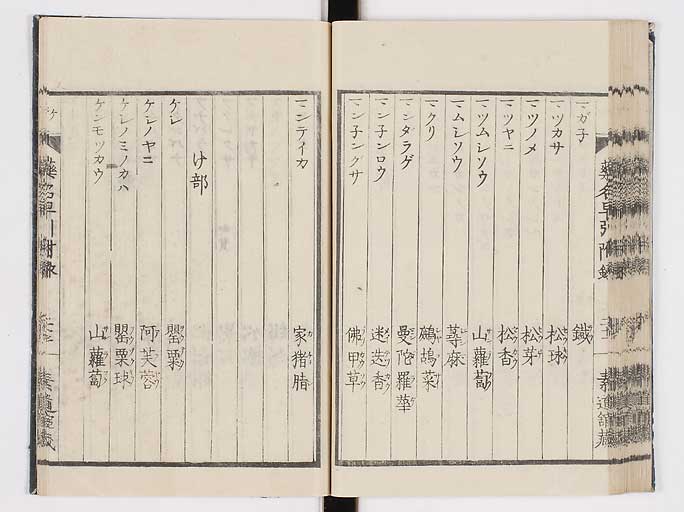 マガ子 鐵
マツカサ 松球
マツノメ 松芽
マツヤニ 松香
マツムシソウ 山蘿蔔
マムシソウ 蕁麻
マクリ 鷓鴣菜
マンダラゲ 曼陀羅華
マン子ンロウ 迷迭香
マン子ングサ 佛甲草
藥名早引附録
マンテイカ 家猪脂
け部
ケシ 罌粟
ケシノヤニ 阿芙蓉
ケシノミノカハ 罌粟球
ケンモツカウ 山蘿蔔
ケ
藥名早引附録